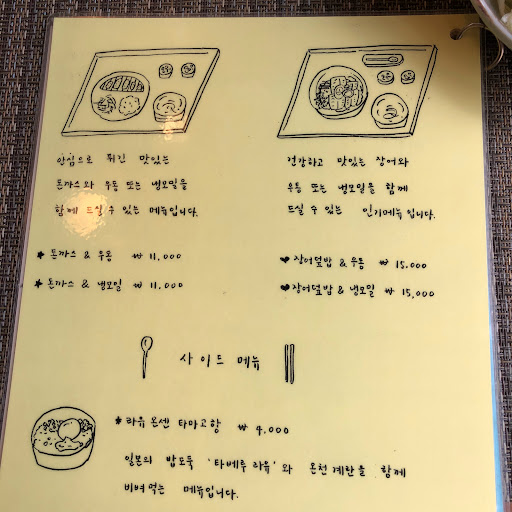 안심으로 튀긴 맛있는
돈까스와 우동 또는 냉모밀을
함께 드실 수 있는 메뉴입니다.
★ 돈까스 & 우동 ₩ 11,000
★ 돈까스 & 냉모밀 ₩ 11,000
건강하고 맛있는 장어와
우동 또는 냉모밀을 함께
드실 수 있는 인기메뉴입니다.
♥ 장어덮밥 & 우동 ₩ 15,000
♥ 장어덮밥 & 냉모밀 ₩ 15,000
사이드 메뉴
★ 라유 온센 타마고항 ₩ 4,000
일본의 밥도둑 '타베루 라유'와 온천계란을 함께
비벼먹는 메뉴입니다.